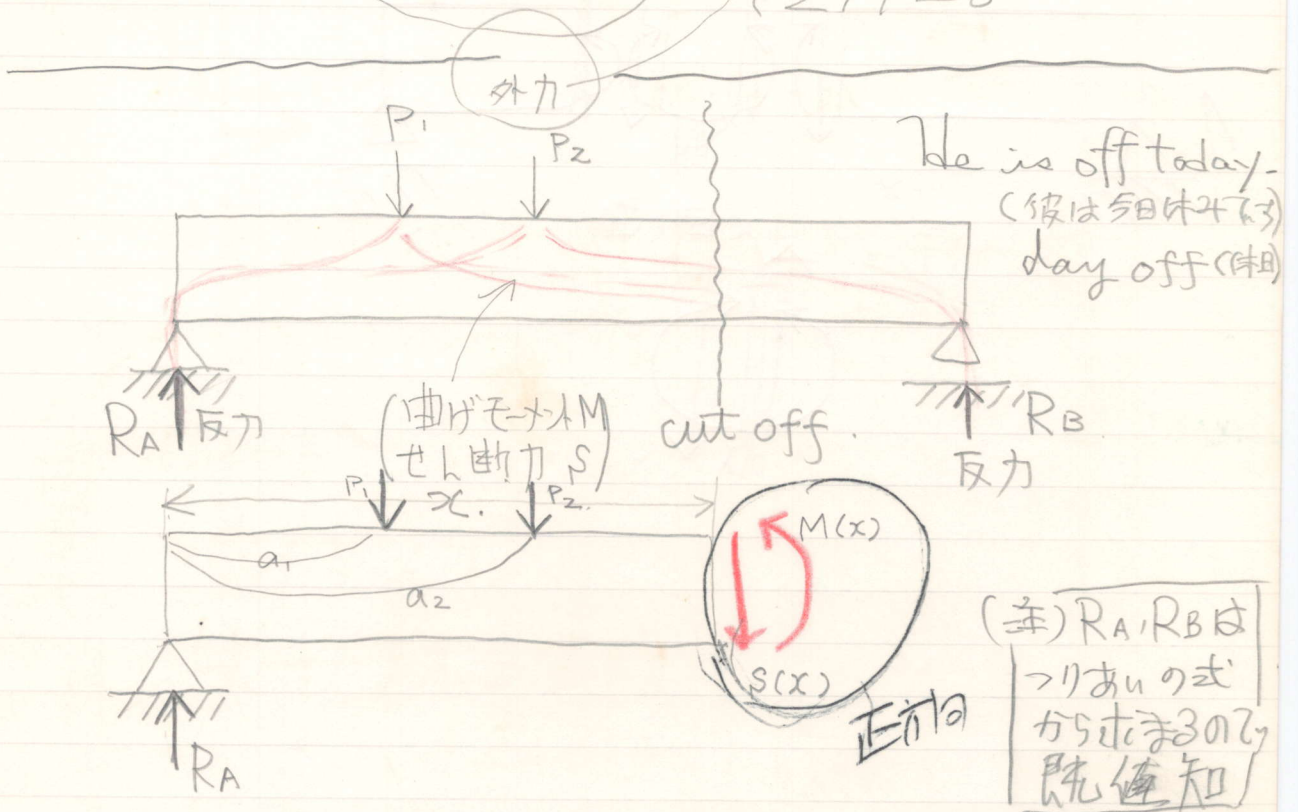 外力
P1
P2
He is off today.
(彼は今日休みです)
day off (休日)
RA 反力
(曲げモーメントM
せん断力 S)
cut off.
RB
反力
x.
P1
P2.
a1
a2
M(x)
S(x)
正方向
RA
(注) RA, RBは
つりあいの式
から求まるので
既値知